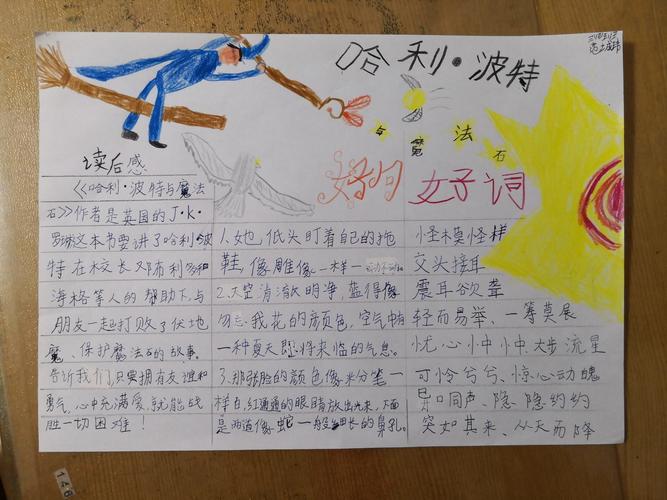 哈利·波特
与魔法石
读后感
《哈利·波特与魔法
石》作者是英国的J·K·
罗琳这本书要讲了哈利·波
特在校长邓布利多和
海格等人的帮助下,与
朋友一起打败了伏地
魔、保护魔法石的故事。
告诉我们,只要拥有友谊和
勇气,心中充满爱,就能战
胜一切困难!
好句
1.她低头盯着自己的拖
鞋,像雕像一样一动不动。
2.天空清澈明净,蓝得像
勿忘我花的颜色,空气中有
一种夏天即将来临的气息。
3.那张脸的颜色像米分笔一
样白,红通通的眼睛放出光来,下面
是两道像蛇一般细长的鼻孔。
好词
怪模怪样
交头接耳
震耳欲聋
轻而易举、一筹莫展
忧心忡忡、大步流星
可怜兮兮、惊心动魄
异口同声、隐隐约约
突如其来、从天而降
146